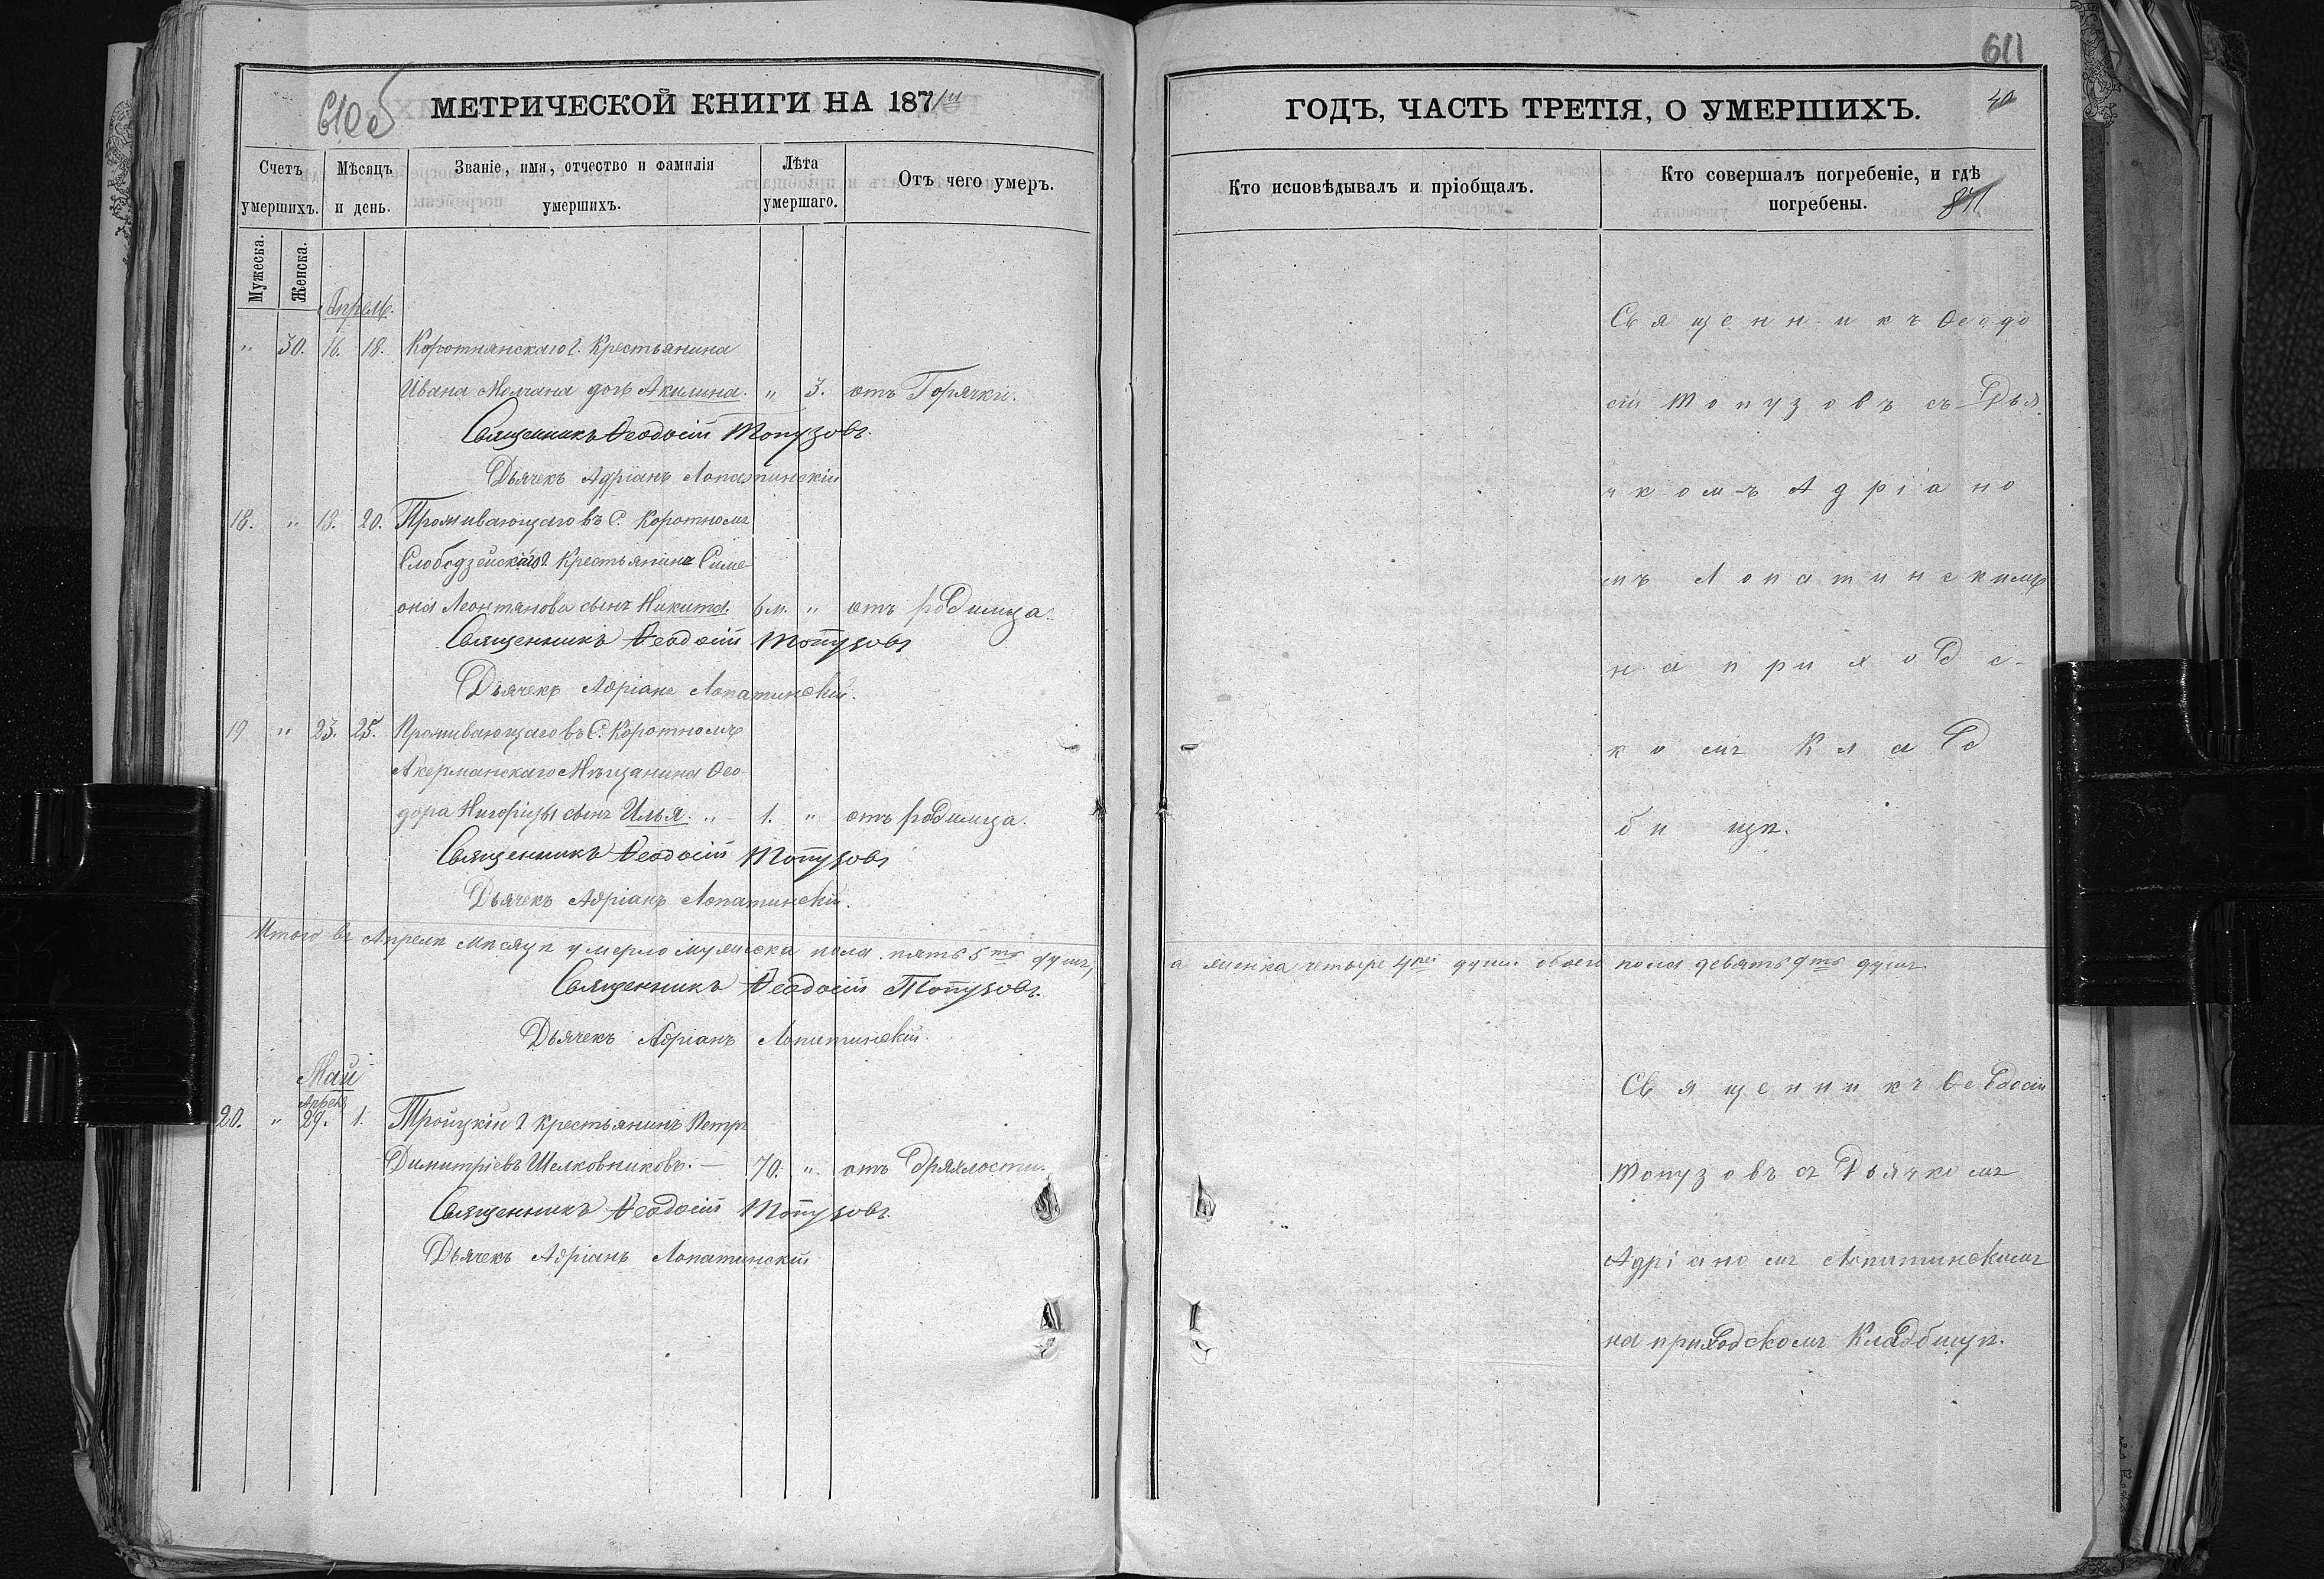 610 об
МЕТРИЧЕСКОЙ КНИГИ НА 1871й
Счетъ умершихъ.
Мѣсяцъ и день.
Званіе, имя, отчество и фамилія умершихъ.
Лѣта умершаго.
Отъ чего умеръ.
Мужеска.
Женска.
Апрель.
" 30. 16. 18. Коротнянскаго о. Крестьянина
Ивана Молчана дочь Акилина. " 3. отъ Горячки.
Священникъ Ѳеодосій Топузовъ.
Дьячекъ Адріанъ Лопатинскій
18. " 18. 20. Проживающаго въ С. Коротномъ
Слободзейскаго о. Крестьянина Симе
она Леонтянова сынъ Никита. 6 м. " отъ родимца.
Священникъ Ѳеодосій Топузовъ
Дьячекъ Адріанъ Лопатинскій.
19 " 23. 25. Проживающаго въ С. Коротномъ
Акерманскаго Мѣщанина Ѳео-
дора сынъ Илья. " 1. " отъ родимца.
Священникъ Ѳеодосій Топузовъ
Дьячекъ Адріанъ Лопатинскій.
Итого въ Апрелѣ мѣсяцѣ умерло мужеска пола пять 5ть душъ,
Священникъ Ѳеодосій Топузовъ.
Дьячекъ Адріанъ Лопатинскій.
Май
Апреля
20. " 29. 1. Троицкій о Крестьянинъ Петръ
Димитріевъ Шелковниковъ. — 70. " отъ дряхлости.
Священникъ Ѳеодосій Топузовъ.
Дьячекъ Адріанъ Лопатинскій
611
ГОДЪ, ЧАСТЬ ТРЕТІЯ, О УМЕРШИХЪ.
40
Кто исповѣдывалъ и пріобщалъ.
Кто совершалъ погребеніе, и гдѣ
погребены.
841
Священникъ Ѳеодо
сій Топузовъ съ Дья
чкомъ Адріано
мъ Лопатинскимъ
на приходс-
комъ Клад
бищѣ.
а женска четыре 4ре души. обоего пола девять 9ть душъ.
Священникъ Ѳеодосій
Топузовъ съ Дьячкомъ
Адріаномъ Лопатинскимъ
на приходскомъ Кладбищѣ.